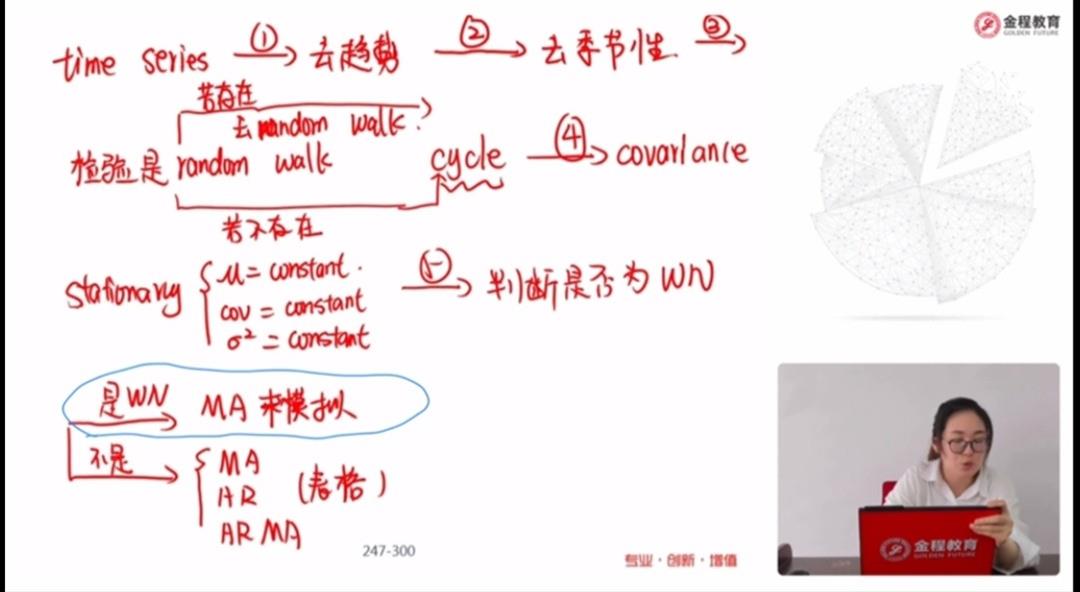 time series ① 去趋势 ② 去季节性 ③
若存在
去random walk.
检验是random walk cycle ④ covariance
若不存在
stationary μ = constant. ⑤ 判断是否为WN
cov = constant
σ² = constant
是WN MA来模拟
不是 MA
AR (表格)
ARMA
247-300
专业·创新·增值
金程教育
GOLDEN FUTURE
金程教育
GOLDEN FUTURE